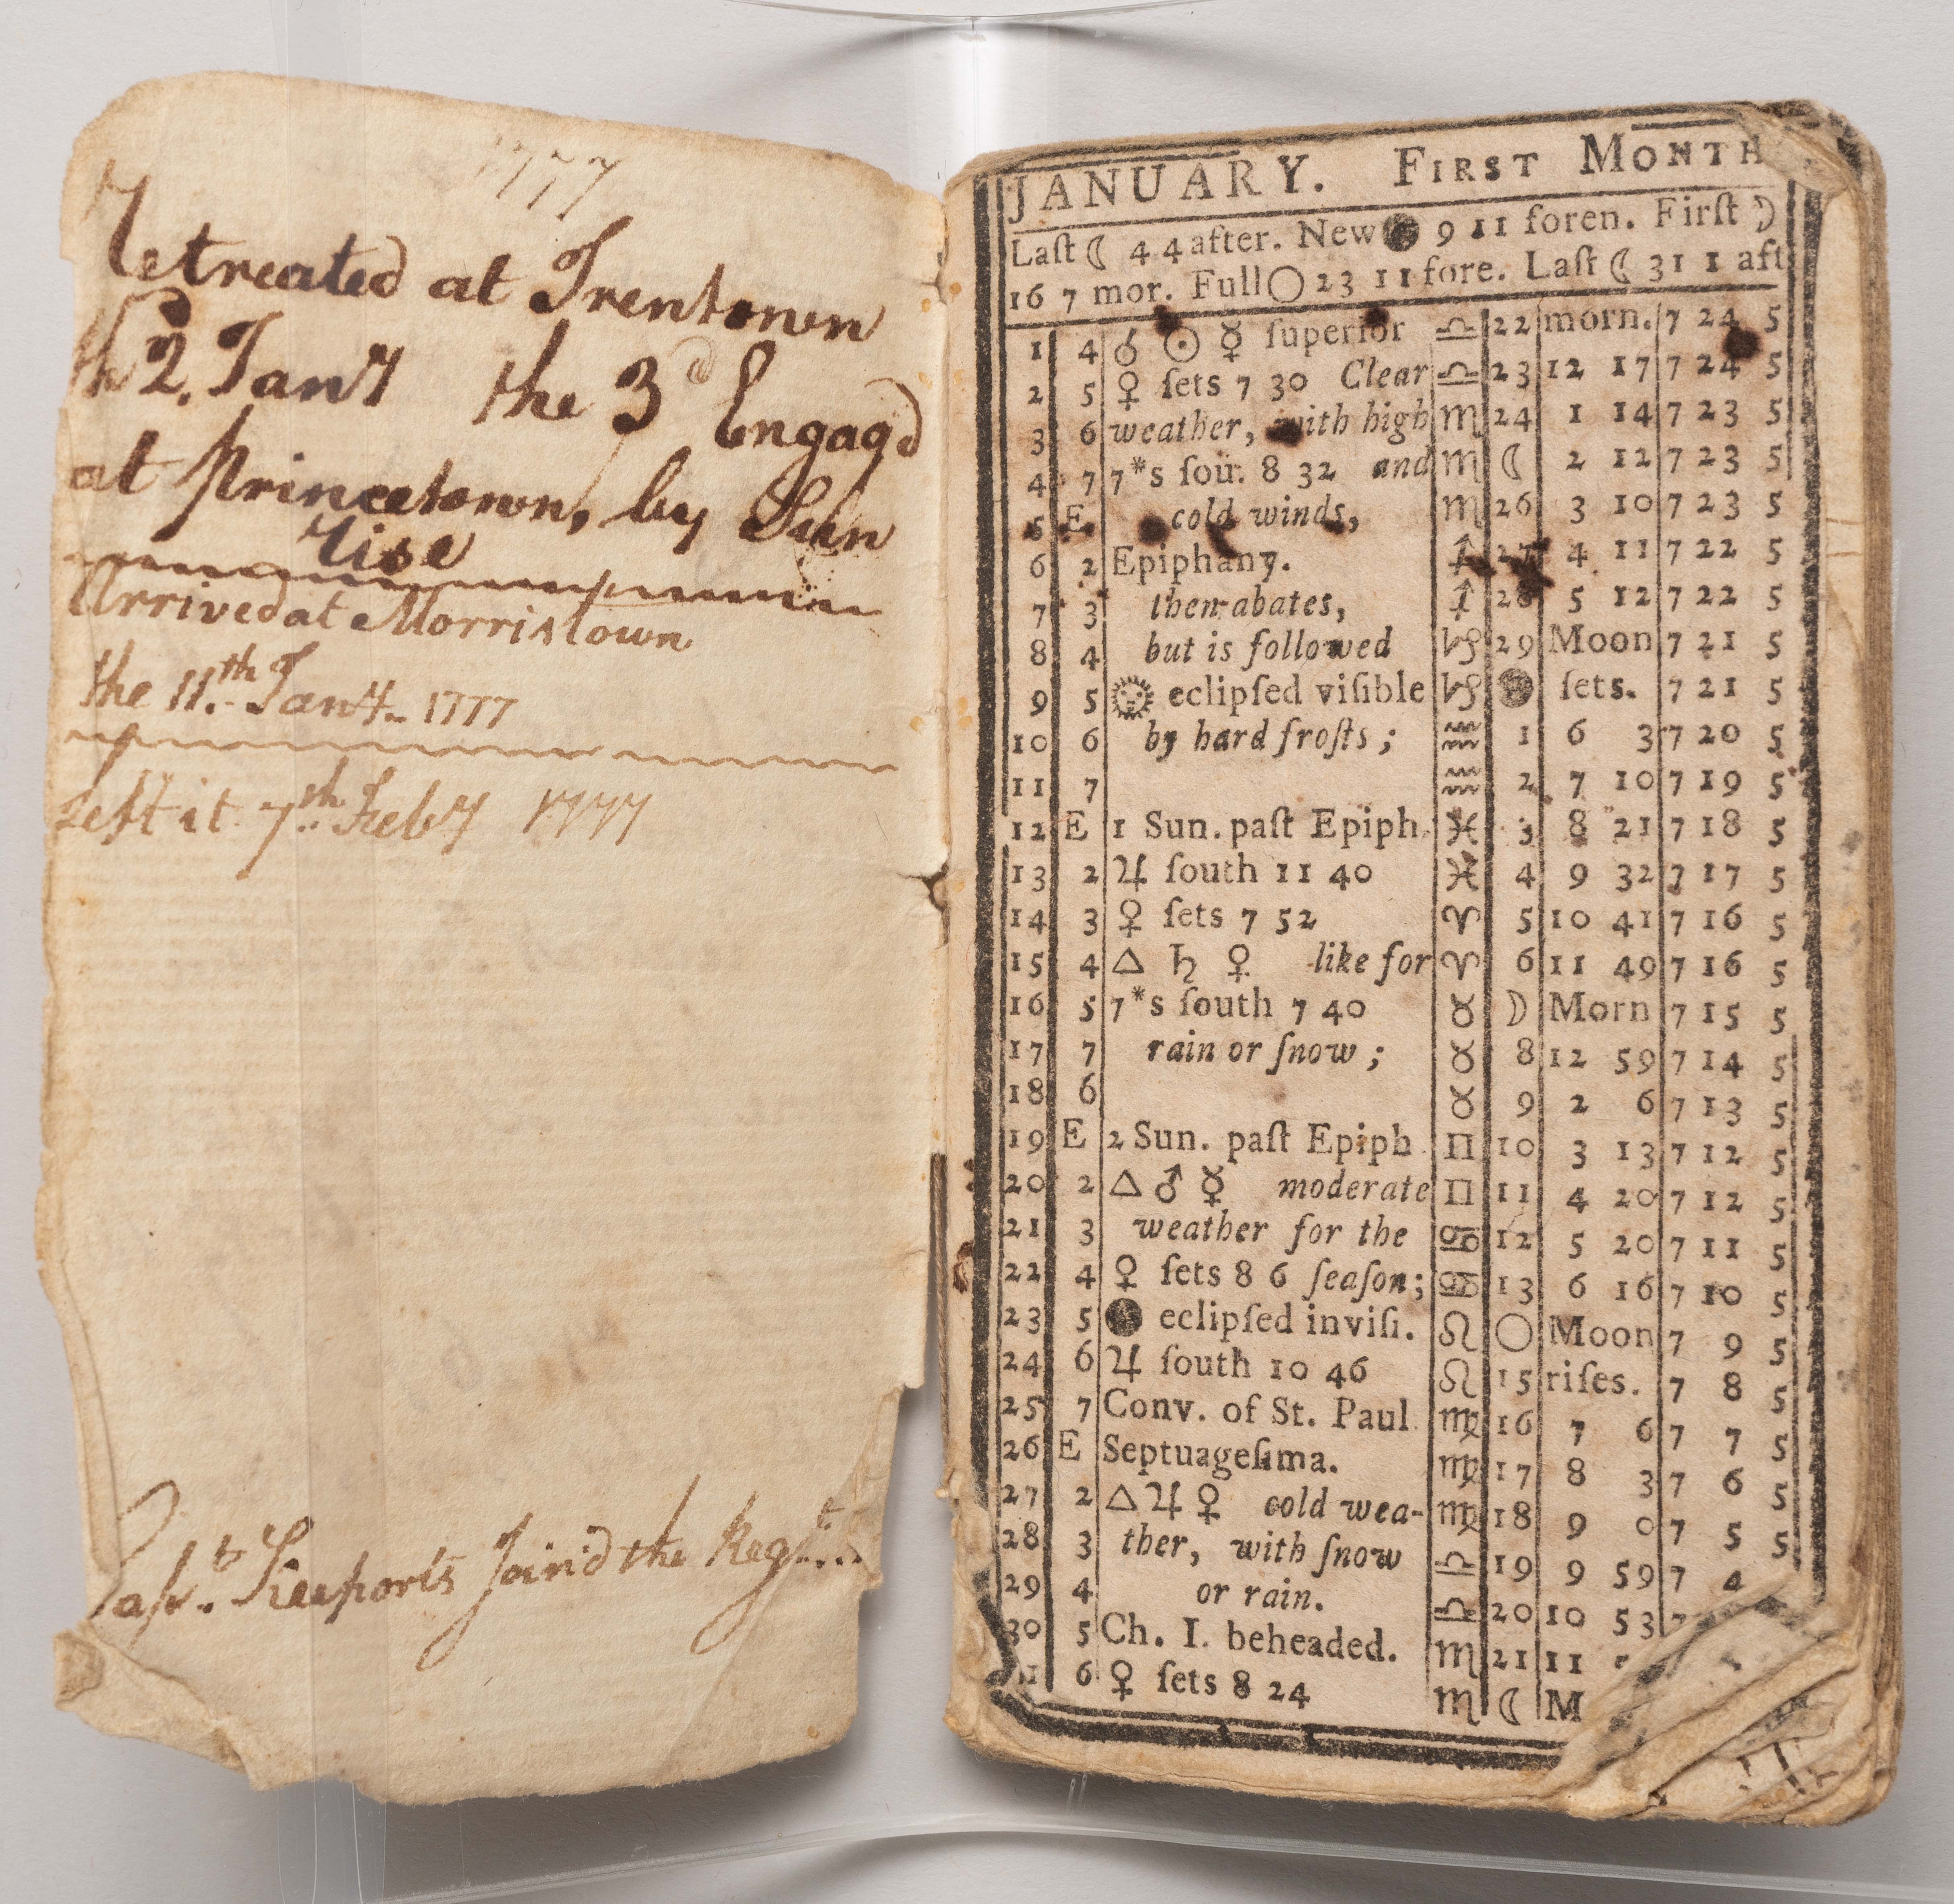 1777
Retreated at Trentown
th 2. Jany the 3d Engagd
at Princetown, by Sun
rise
Arrived at Morristown
the 11.th Jany. 1777
Left it 7th Feby 1777
Capt. Keeports Join'd the Regt...
JANUARY. FIRST MONTH
Laſt ☾ 4 4 after. New ● 9 11 foren. Firſt ☽
16 7 mor. Full ○ 23 11 fore. Laſt ☾ 31 1 aft
1 4 ☌ ☉ ☿ ſuperior ♎ 22 morn. 7 24 5
2 5 ♀ ſets 7 30 Clear ♎ 23 12 17 7 24 5
3 6 weather, with high ♏ 24 1 14 7 23 5
4 7 7*s ſou. 8 32 and ♏ ☾ 2 12 7 23 5
5 E cold winds, ♏ 26 3 10 7 23 5
6 2 Epiphany. ♐ 27 4 11 7 22 5
7 3 then abates, ♐ 28 5 12 7 22 5
8 4 but is followed ♑ 29 Moon 7 21 5
9 5 ☉ eclipſed viſible ♑ ● ſets. 7 21 5
10 6 by hard froſts ; ♒ 1 6 3 7 20 5
11 7 ♒ 2 7 10 7 19 5
12 E 1 Sun. paſt Epiph. ♓ 3 8 21 7 18 5
13 2 ♃ ſouth 11 40 ♓ 4 9 32 7 17 5
14 3 ♀ ſets 7 52 ♈ 5 10 41 7 16 5
15 4 △ ♄ ♀ like for ♈ 6 11 49 7 16 5
16 5 7*s ſouth 7 40 ♉ ☽ Morn 7 15 5
17 7 rain or ſnow ; ♉ 8 12 59 7 14 5
18 6 ♉ 9 2 6 7 13 5
19 E 2 Sun. paſt Epiph ♊ 10 3 13 7 12 5
20 2 △ ♂ ☿ moderate ♊ 11 4 20 7 12 5
21 3 weather for the ♋ 12 5 20 7 11 5
22 4 ♀ ſets 8 6 ſeaſon; ♋ 13 6 16 7 10 5
23 5 ● eclipſed inviſi. ♌ ○ Moon 7 9 5
24 6 ♃ ſouth 10 46 ♌ 15 riſes. 7 8 5
25 7 Conv. of St. Paul ♍ 16 7 6 7 7 5
26 E Septuageſima. ♍ 17 8 3 7 6 5
27 2 △ ♃ ♀ cold wea- ♍ 18 9 0 7 5 5
28 3 ther, with ſnow ♎ 19 9 59 7 4
29 4 or rain. ♎ 20 10 53 7
30 5 Ch. I. beheaded. ♏ 21 11
6 ♀ ſets 8 24 ♏ ☾ M